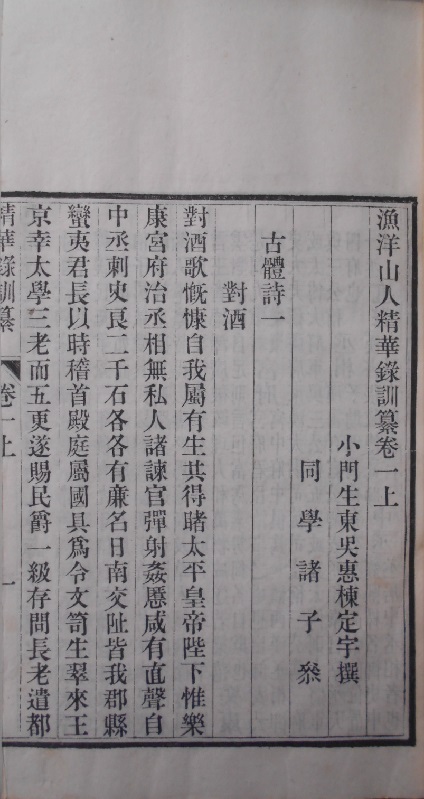 漁洋山人精華錄訓纂卷一上
小門生東吳惠棟定宇撰
同學諸子叅
古體詩一
對酒
對酒歌慨慷自我屬有生其得睹太平皇帝陛下惟樂
康宮府治丞相無私人諸諫官彈射姦慝咸有直聲自
中丞刺史良二千石各各有廉名日南交阯皆我郡縣
蠻夷君長以時稽首殿庭屬國具爲令文笥生翠來王
京幸太學三老而五更遂賜民爵一級存問長老遣都
精華錄訓纂 卷一上 一